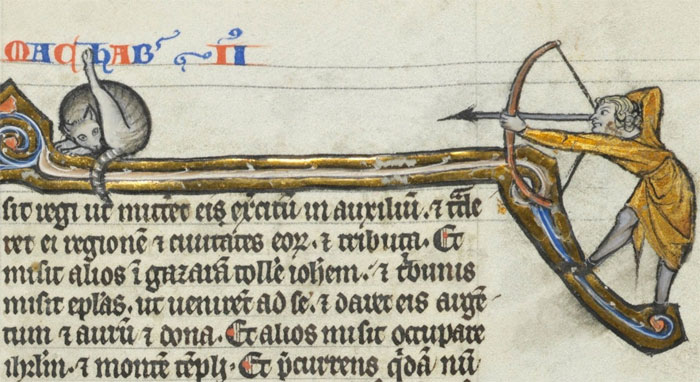 MACHAB' II
sit regi ut mittēt eis exc̄itū in auxiliū. ⁊ t͛de
ret ei regionē ⁊ ciuitates eoꝝ. ⁊ tributa. Et
misit alios ī gazarā tolle͛ ioh̄em. ⁊ t͛bunis
misit ep̄las. ut uenirēt ad se. ⁊ daret eis argē
tum ⁊ aurū ⁊ dona. Et alios misit occupare
ih̄rlm̄. ⁊ montē tēpli. Et p̄currens q͛dā nū